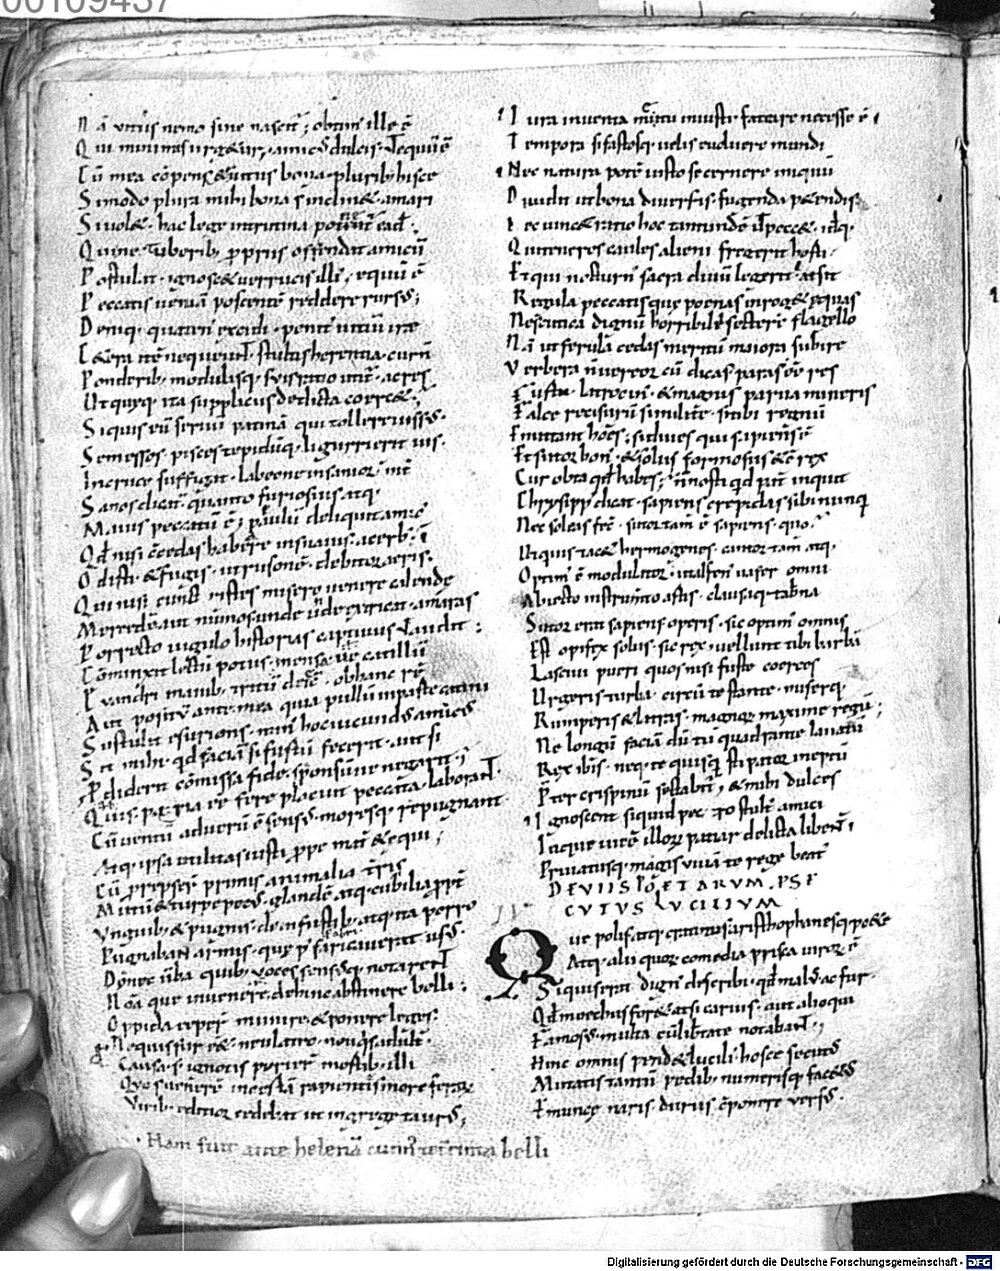 00109437
Nā vitiis nemo sine nascit; obtim ille ē
Qui minimis urgetur; amicꝰ dulcis ut equū ē
Cū mea cōpenset vitiis bona pluribꝰ hisce
Si modo plura mihi bona sinclinet amari
Si volet hac lege in trutina
Qui ne tuberibꝰ ppriis offendat amicū
Postulat ignoscet verrucis illiꝰ equū ē
Peccatis veniā poscentē reddere rursꝰ;
Deniq; quaten excidi penitꝰ vitiū ire
Cetera itē nequeunt stultis herentia cur ñ
Ponderibꝰ modulisq; suis ratio utit ac res
Ut queq; ita suppliciis delicta coercet;
Siquis eū servū patinā qui tollere iussꝰ
Semessos pisces tepidūq; ligurrierit ius
In cruce suffigat labeone insanior int
Sanos dicat quanto furiosius atq;
Maius peccatū ē; paulū deliquit amicꝰ
Qd nisi cōcedas habere insuavis acerbꝰ
Odisti & fugis ut rusonē debitor aeris
Qui nisi cū tristes misero venere calende
Mercedē aut nūmos unde unde extricat amaras
Porrecto iugulo historias captivus ut audit;
Cōminxit lectū potus mensa ve catillū
Evandri manibꝰ tritū deiecit ob hanc rē
Aut positū ante mea quia pullū in parte catini
Sustulit esuriens minꝰ hoc iucundꝰ amicꝰ
Sit mihi qd faciā si furtū fecerit aut si
Pdiderit cōmissa fide sponsūve negarit;
Quis paria ee fere placuit peccata laborant
Cū ventū ad verū ē sensꝰ moresq; repugnant
Atq; ipsa utilitas iusti ppe mat & equi;
Cū prorepser primis animalia tris
Mutū & turpe pecꝰ glandē atq; cubilia ppt
Unguibꝰ & pugnis dein fustibꝰ atq; ita porro
Pugnabant armis que p fabricaverat usꝰ
Donec verba quibꝰ voces sensusq; notarent
Nōaq; invenere dehinc absistere bello;
Oppida ceper munire & ponere leges
Nequis fur eet neu latro neu quis adulter
Causa s; ignotis perier mortibꝰ illi
Quos venerē incertā rapientis more ferarꝫ
Viribꝰ editior cedebat ut in grege taurꝰ;
Nam fuit ante helenā cunnꝰ teterrima belli
Iura inventa metu iniusti fateare necesse ē
Tempora si fastosq; velis evolvere mundi
Nec natura potē iusto secernere iniquū
Dividit ut bona diversis fugienda petendis
Nec vincet ratio hoc tantundē ut peccet idēq;
Qui teneros caules alieni fregerit horti
Et qui nocturnꝰ sacra divū legerit adsit
Regula peccatis que poenas inroget equas
Ne scutica dignū horribile sectere flagello
Nā ut ferula cedas meritū maiora subire
Verbera n vereor cū dicas paras ee res
Furta latrociniis & magnis parva mineris
Falce recisurū simili te si tibi regnū
Pmittant hoēs; si dives qui sapiens ē
Et sutor bonꝰ & solus formosus & ē rex
Cur optas qd habes; n nosti qd pat inquit
Chrysippꝰ dicat sapiens crepidas sibi nunq
Nec soleas fecit sutor tam ē sapiens quo
Ut quis tacet hermogenes cantor tam atq;
Optimꝰ ē modulator ut alfenꝰ vafer omni
Abiecto instrumto artis clausaq; tabna
Sutor erat sapiens operis sic optimꝰ omnis
Est opifex solus sic rex; vellunt tibi barbā
Lascivi pueri quos nisi fuste coerces
Urgeris turba circū te stante miserq;
Rumperis & latras magnorꝫ maxime regū;
Ne longū faciā dū tu quadrante lavatū
Rex ibis neq; te quisq; stipator ineptū
Pter crispinū sectabit; & mihi dulces
Ignoscent siquid peccaro stultꝰ amici
Inq; vicē illorꝫ patiar delicta libent
Privatusq; magis vivā te rege beatꝰ
DE VIIS POETARVM PSE
CVTVS LVCILIVM
IV
Eupolis atq; cratinus aristhophanesq; poete
Atq; alii quorꝫ comedia prisca virorꝫ ē
Siquis erat dignꝰ describi qd malꝰ ac fur
Qd moechus foret aut sicarius aut alioqui
Famosꝰ multa cū libtate notabant;
Hinc omnis pendet lucilius hosce secutꝰ
Mutatis tantū pedibꝰ numerisq; facetꝰ
Emuncte naris durus cōponere versꝰ
Digitalisierung gefördert durch die Deutsche Forschungsgemeinschaft - DFG